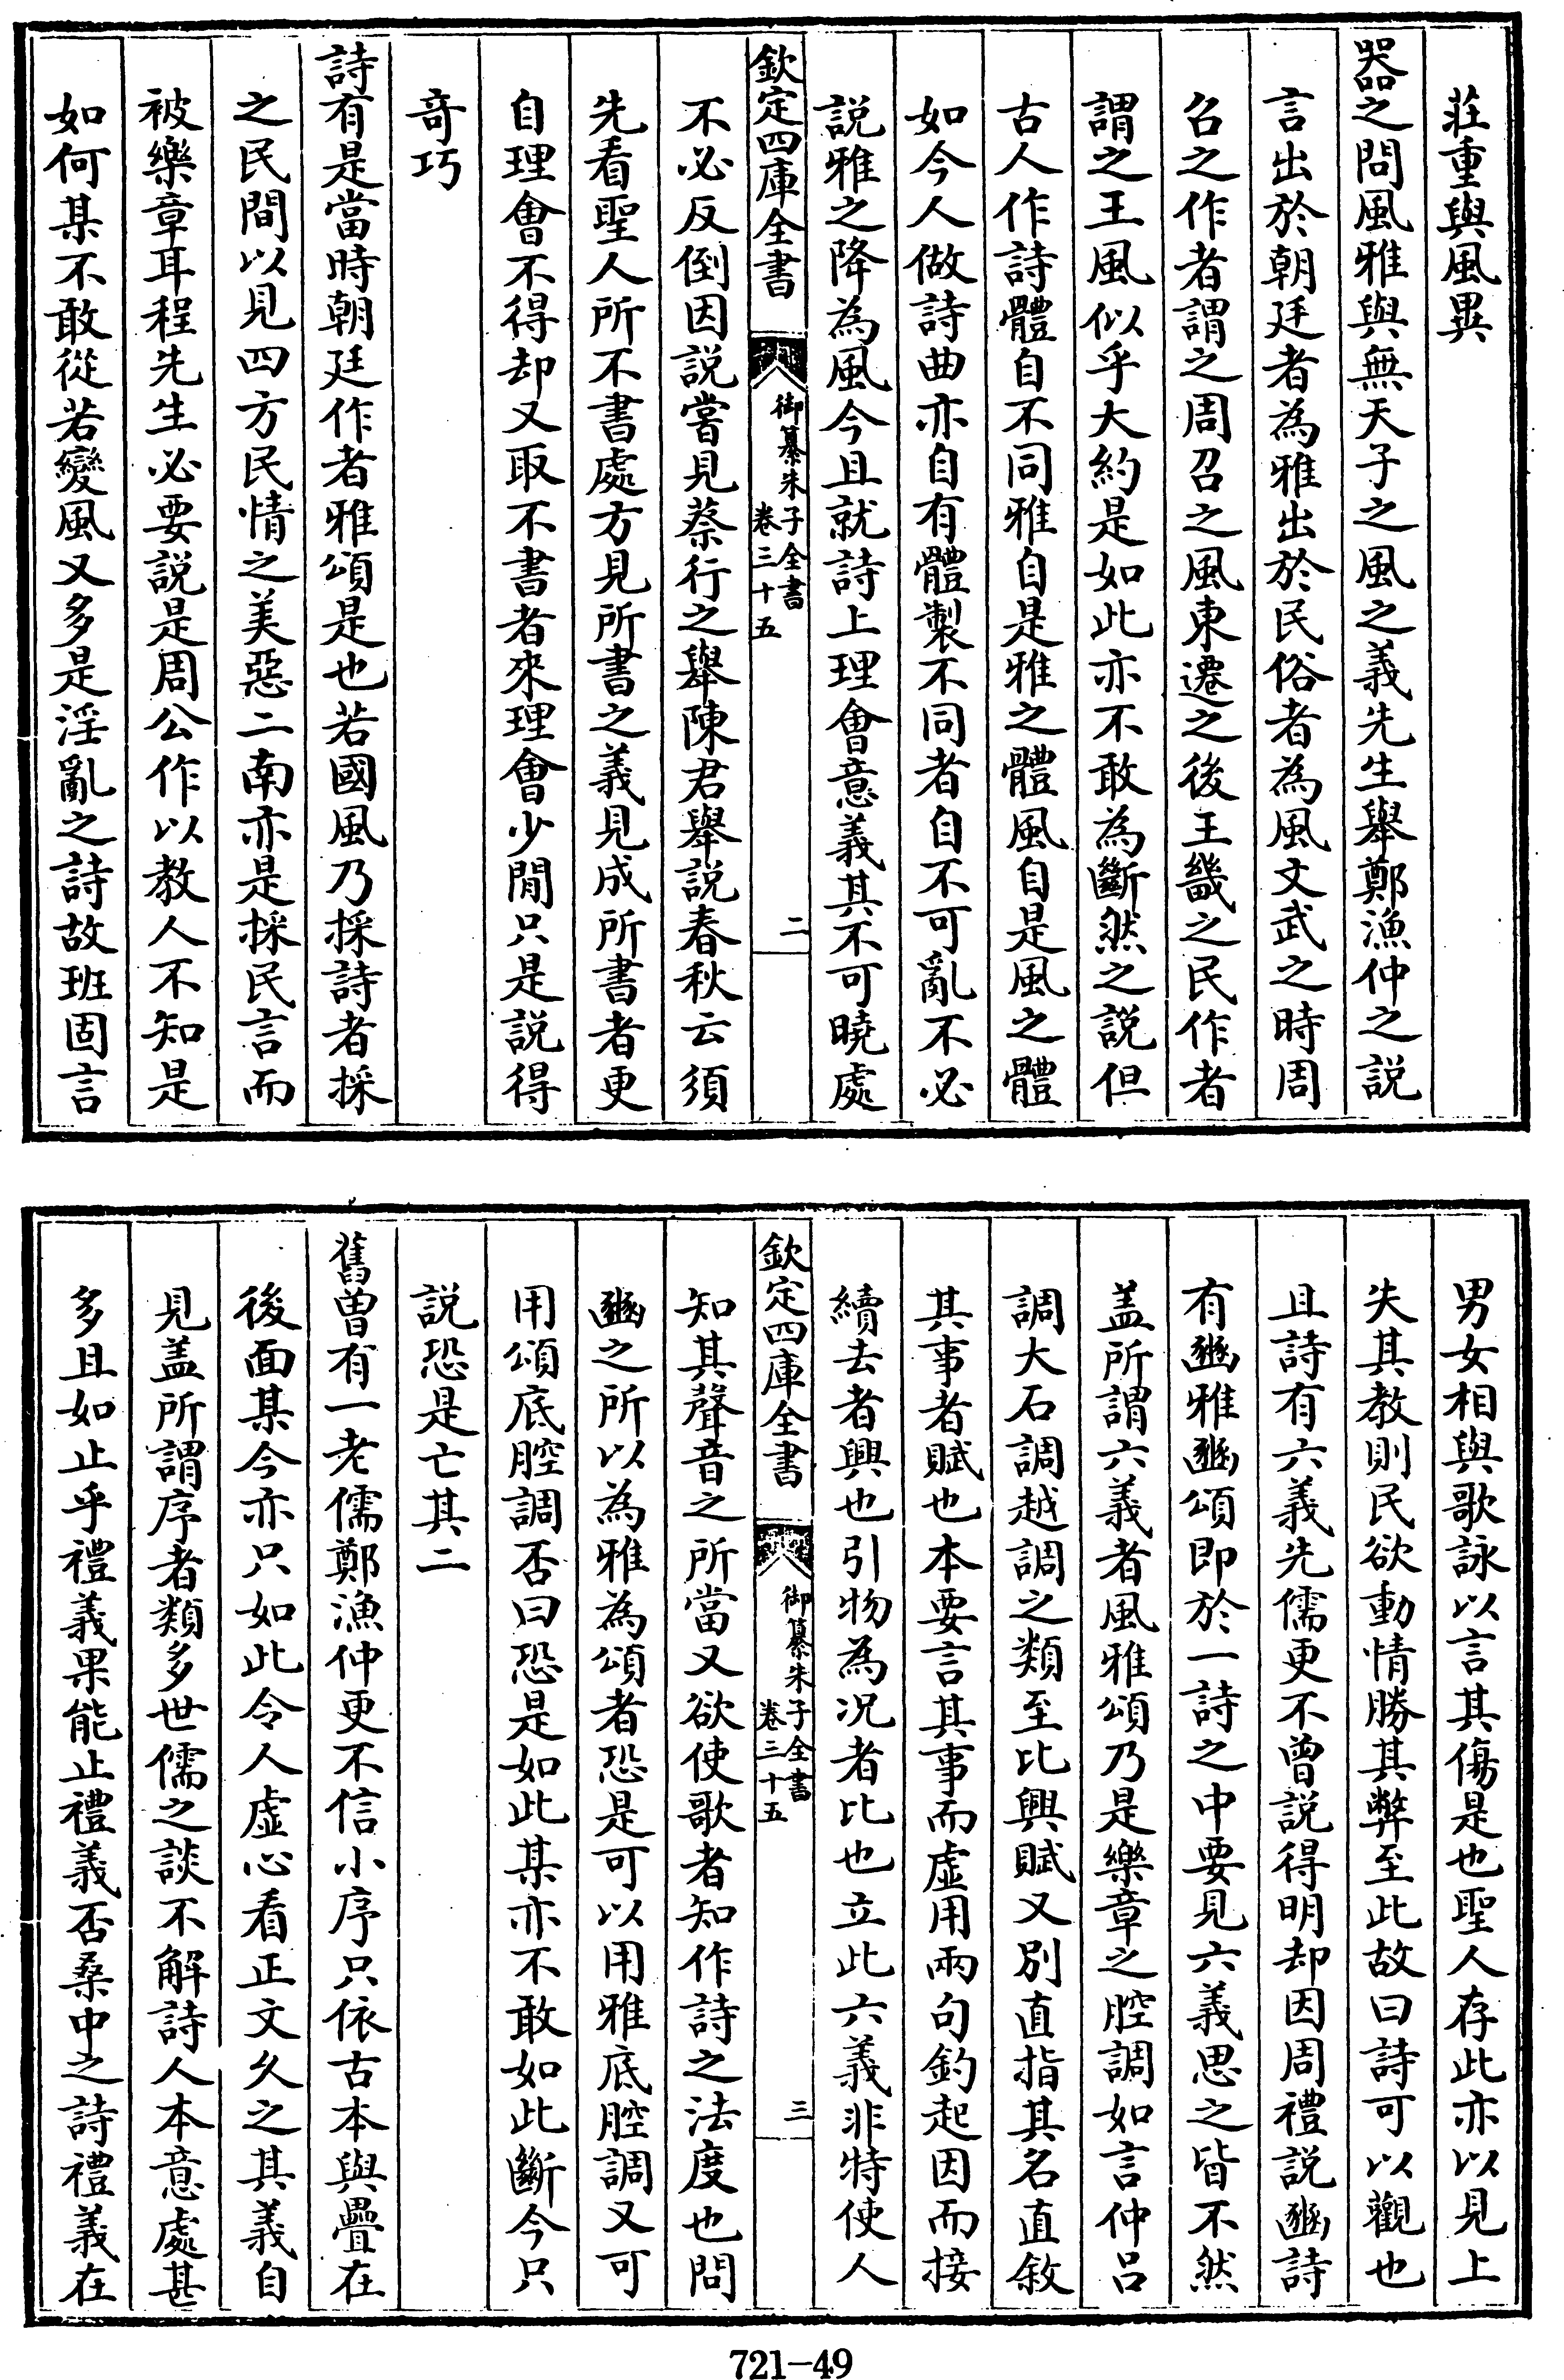 莊重與風異
器之問風雅與無天子之風之義先生舉鄭漁仲之説
言出於朝廷者為雅出於民俗者為風文武之時周
召之作者謂之周召之風東遷之後王畿之民作者
謂之王風似乎大約是如此亦不敢為斷然之説但
古人作詩體自不同雅自是雅之體風自是風之體
如今人做詩曲亦自有體製不同者自不可亂不必
説雅之降為風今且就詩上理會意義其不可曉處
欽定四庫全書
御纂朱子全書
卷三十五
二
不必反倒因説嘗見蔡行之舉陳君舉説春秋云須
先看聖人所不書處方見所書之義見成所書者更
自理會不得却又取不書者來理會少閒只是説得
竒巧
詩有是當時朝廷作者雅頌是也若國風乃採詩者採
之民間以見四方民情之美惡二南亦是採民言而
被樂章耳程先生必要説是周公作以教人不知是
如何某不敢從若變風又多是淫亂之詩故班固言
男女相與歌詠以言其傷是也聖人存此亦以見上
失其教則民欲動情勝其弊至此故曰詩可以觀也
且詩有六義先儒更不曾説得明却因周禮説豳詩
有豳雅豳頌即於一詩之中要見六義思之皆不然
盖所謂六義者風雅頌乃是樂章之腔調如言仲呂
調大石調越調之類至比興賦又別直指其名直敘
其事者賦也本要言其事而虛用兩句釣起因而接
續去者興也引物為況者比也立此六義非特使人
欽定四庫全書
御纂朱子全書
卷三十五
三
知其聲音之所當又欲使歌者知作詩之法度也問
豳之所以為雅為頌者恐是可以用雅底腔調又可
用頌底腔調否曰恐是如此某亦不敢如此斷今只
説恐是亡其二
舊曾有一老儒鄭漁仲更不信小序只依古本與疊在
後面某今亦只如此令人虛心看正文久之其義自
見盖所謂序者類多世儒之談不解詩人本意處甚
多且如止乎禮義果能止禮義否桑中之詩禮義在
721-49